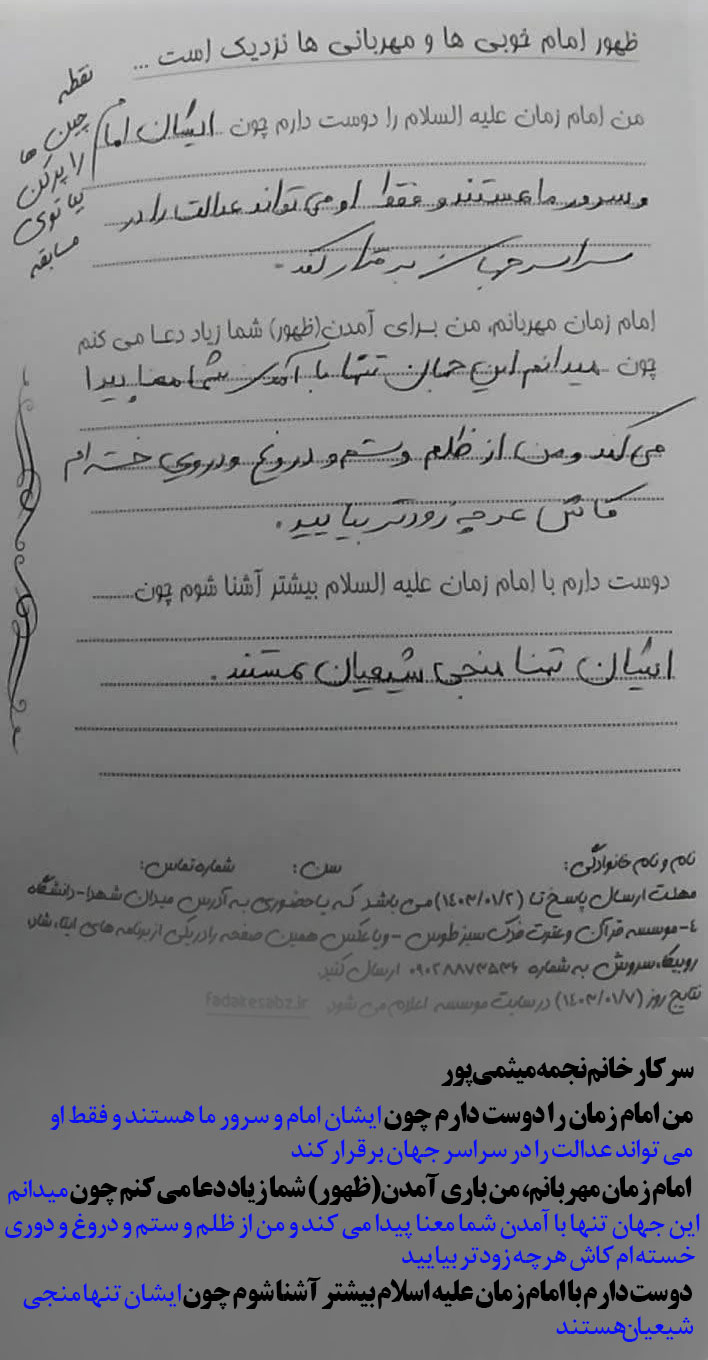 ظهور امام خوبی ها و مهربانی ها نزدیک است ...
نقطه
چین ها
را پر کن
بیا توی
مسابقه
من امام زمان علیه السلام را دوست دارم چون ایشان امام
و سرور ما هستند و فقط او می تواند عدالت را در
سراسر جهان برقرار کند.
امام زمان مهربانم، من برای آمدن(ظهور) شما زیاد دعا می کنم
چون میدانم این جهان تنها با آمدن شما معنا پیدا
می کند و من از ظلم و ستم و دروغ و دوری خسته ام
کاش هرچه زودتر بیایید.
دوست دارم با امام زمان علیه السلام بیشتر آشنا شوم چون.........
ایشان تنها منجی شیعیان هستند.
نام و نام خانوادگی: سن: شماره تماس:
مهلت ارسال پاسخ تا (۱۴۰۳/۰۱/۲) می باشد که یا حضوری به آدرس میدان شهدا-دانشگاه
۴-موسسه قرآن و عترت فدک سبز طوس - و یا عکس همین صفحه را در یکی از برنامه های ایتا، شاد،
روبیکا، سروش به شماره ۰۹۰۲۸۸۷۳۵۳۶ ارسال کنید.
نتایج روز (۱۴۰۳/۰۱/۷) در سایت موسسه اعلام می شود fadakesabz.ir
سرکار خانم نجمه میثمی‌پور
من امام زمان را دوست دارم چون ایشان امام و سرور ما هستند و فقط او
می تواند عدالت را در سراسر جهان برقرار کند
امام زمان مهربانم، من باری آمدن(ظهور) شما زیاد دعا می کنم چون میدانم
این جهان تنها با آمدن شما معنا پیدا می کند و من از ظلم و ستم و دروغ و دوری
خسته ام کاش هرچه زودتر بیایید
دوست دارم با امام زمان علیه اسلام بیشتر آشنا شوم چون ایشان تنها منجی
شیعیان‌هستند